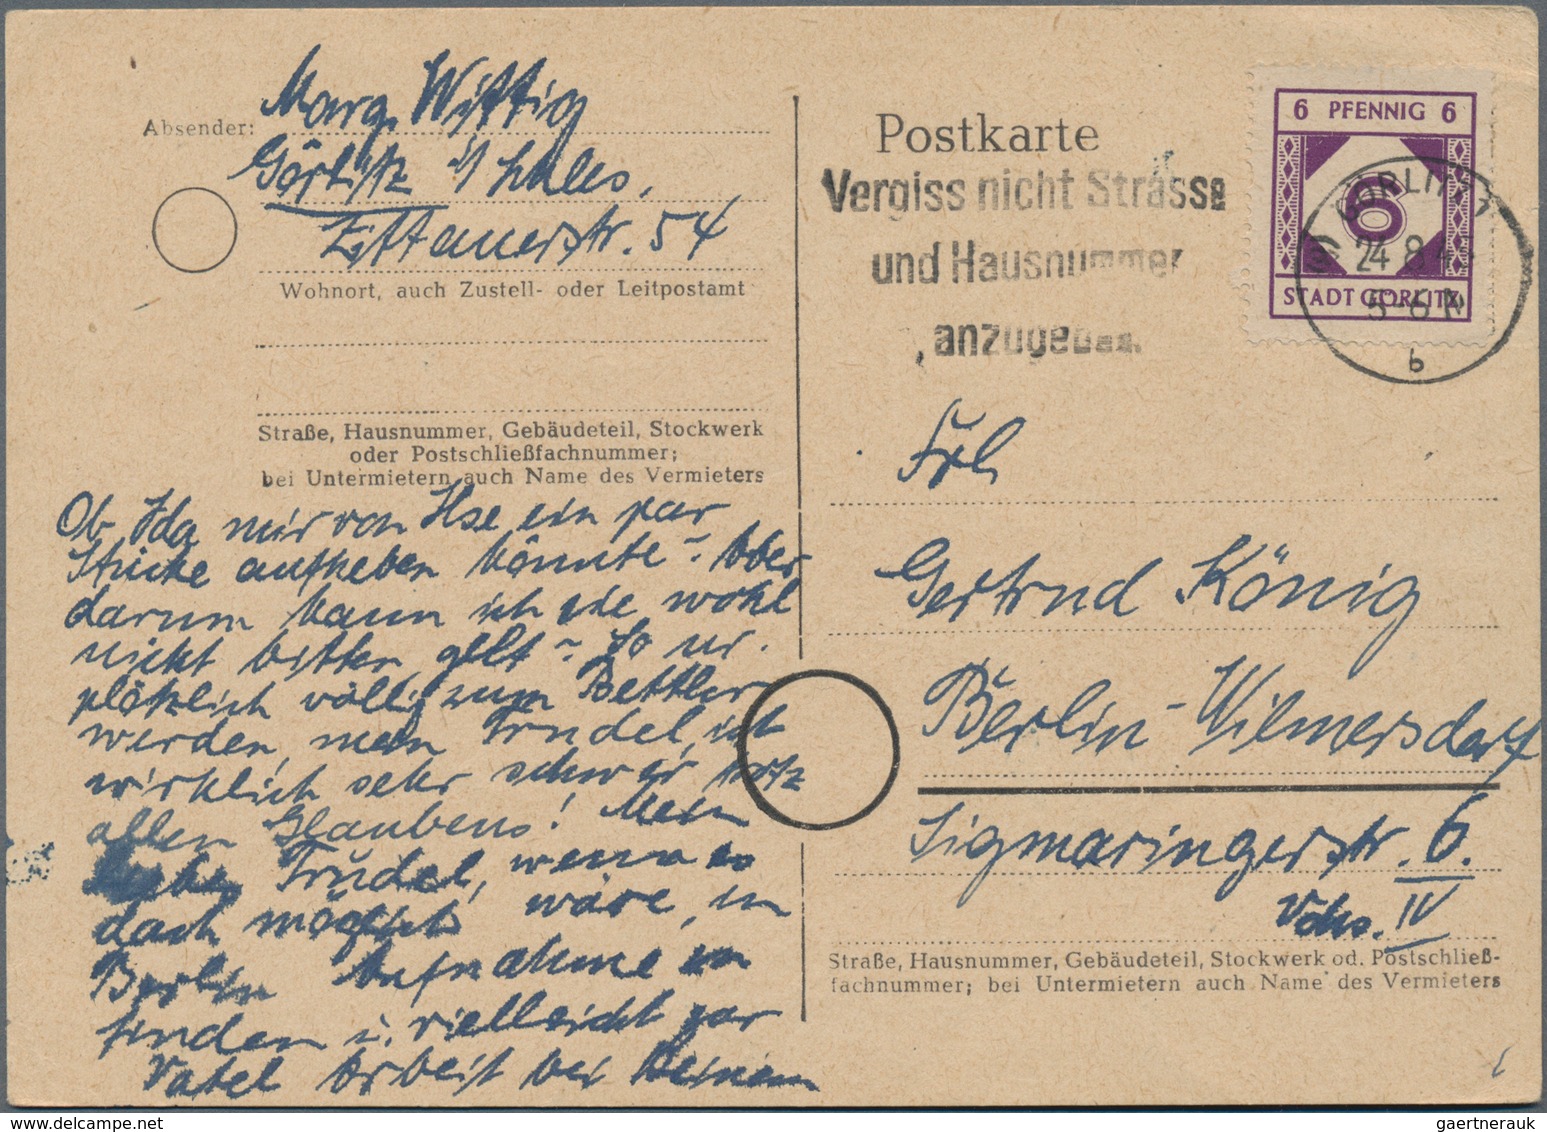 Absender: Marg. Wittig
Görlitz i/Schles.
Zittauerstr. 54
Wohnort, auch Zustell- oder Leitpostamt
Straße, Hausnummer, Gebäudeteil, Stockwerk
oder Postschließfachnummer;
bei Untermietern auch Name des Vermieters
Ob Ida mir von Ilse ein par
Stücke aufheben könnte - Aber
darum kann ich sie wohl
nicht bitten, gelt - So ur.
plötzlich völlig zum Bettler
werden, mein Trudel, ist
wirklich sehr schwer trotz
allen Glaubens! Mein
Trudel, wenn es
doch möglich wäre, in
Berlin Aufnahme zu
finden u. vielleicht gar
Vatel Arbeit bei Deinem
Postkarte
Vergiss nicht Strasse
und Hausnummer
anzugeben.
6 PFENNIG 6
6
STADT GÖRLITZ
GÖRLITZ
24 8
5-6
b
Frl
Gertrud König
Berlin-Wilmersdorf
Sigmaringerstr. 6.
IV
Straße, Hausnummer, Gebäudeteil, Stockwerk od. Postschließ-
fachnummer; bei Untermietern auch Name des Vermieters
gaertnerauk